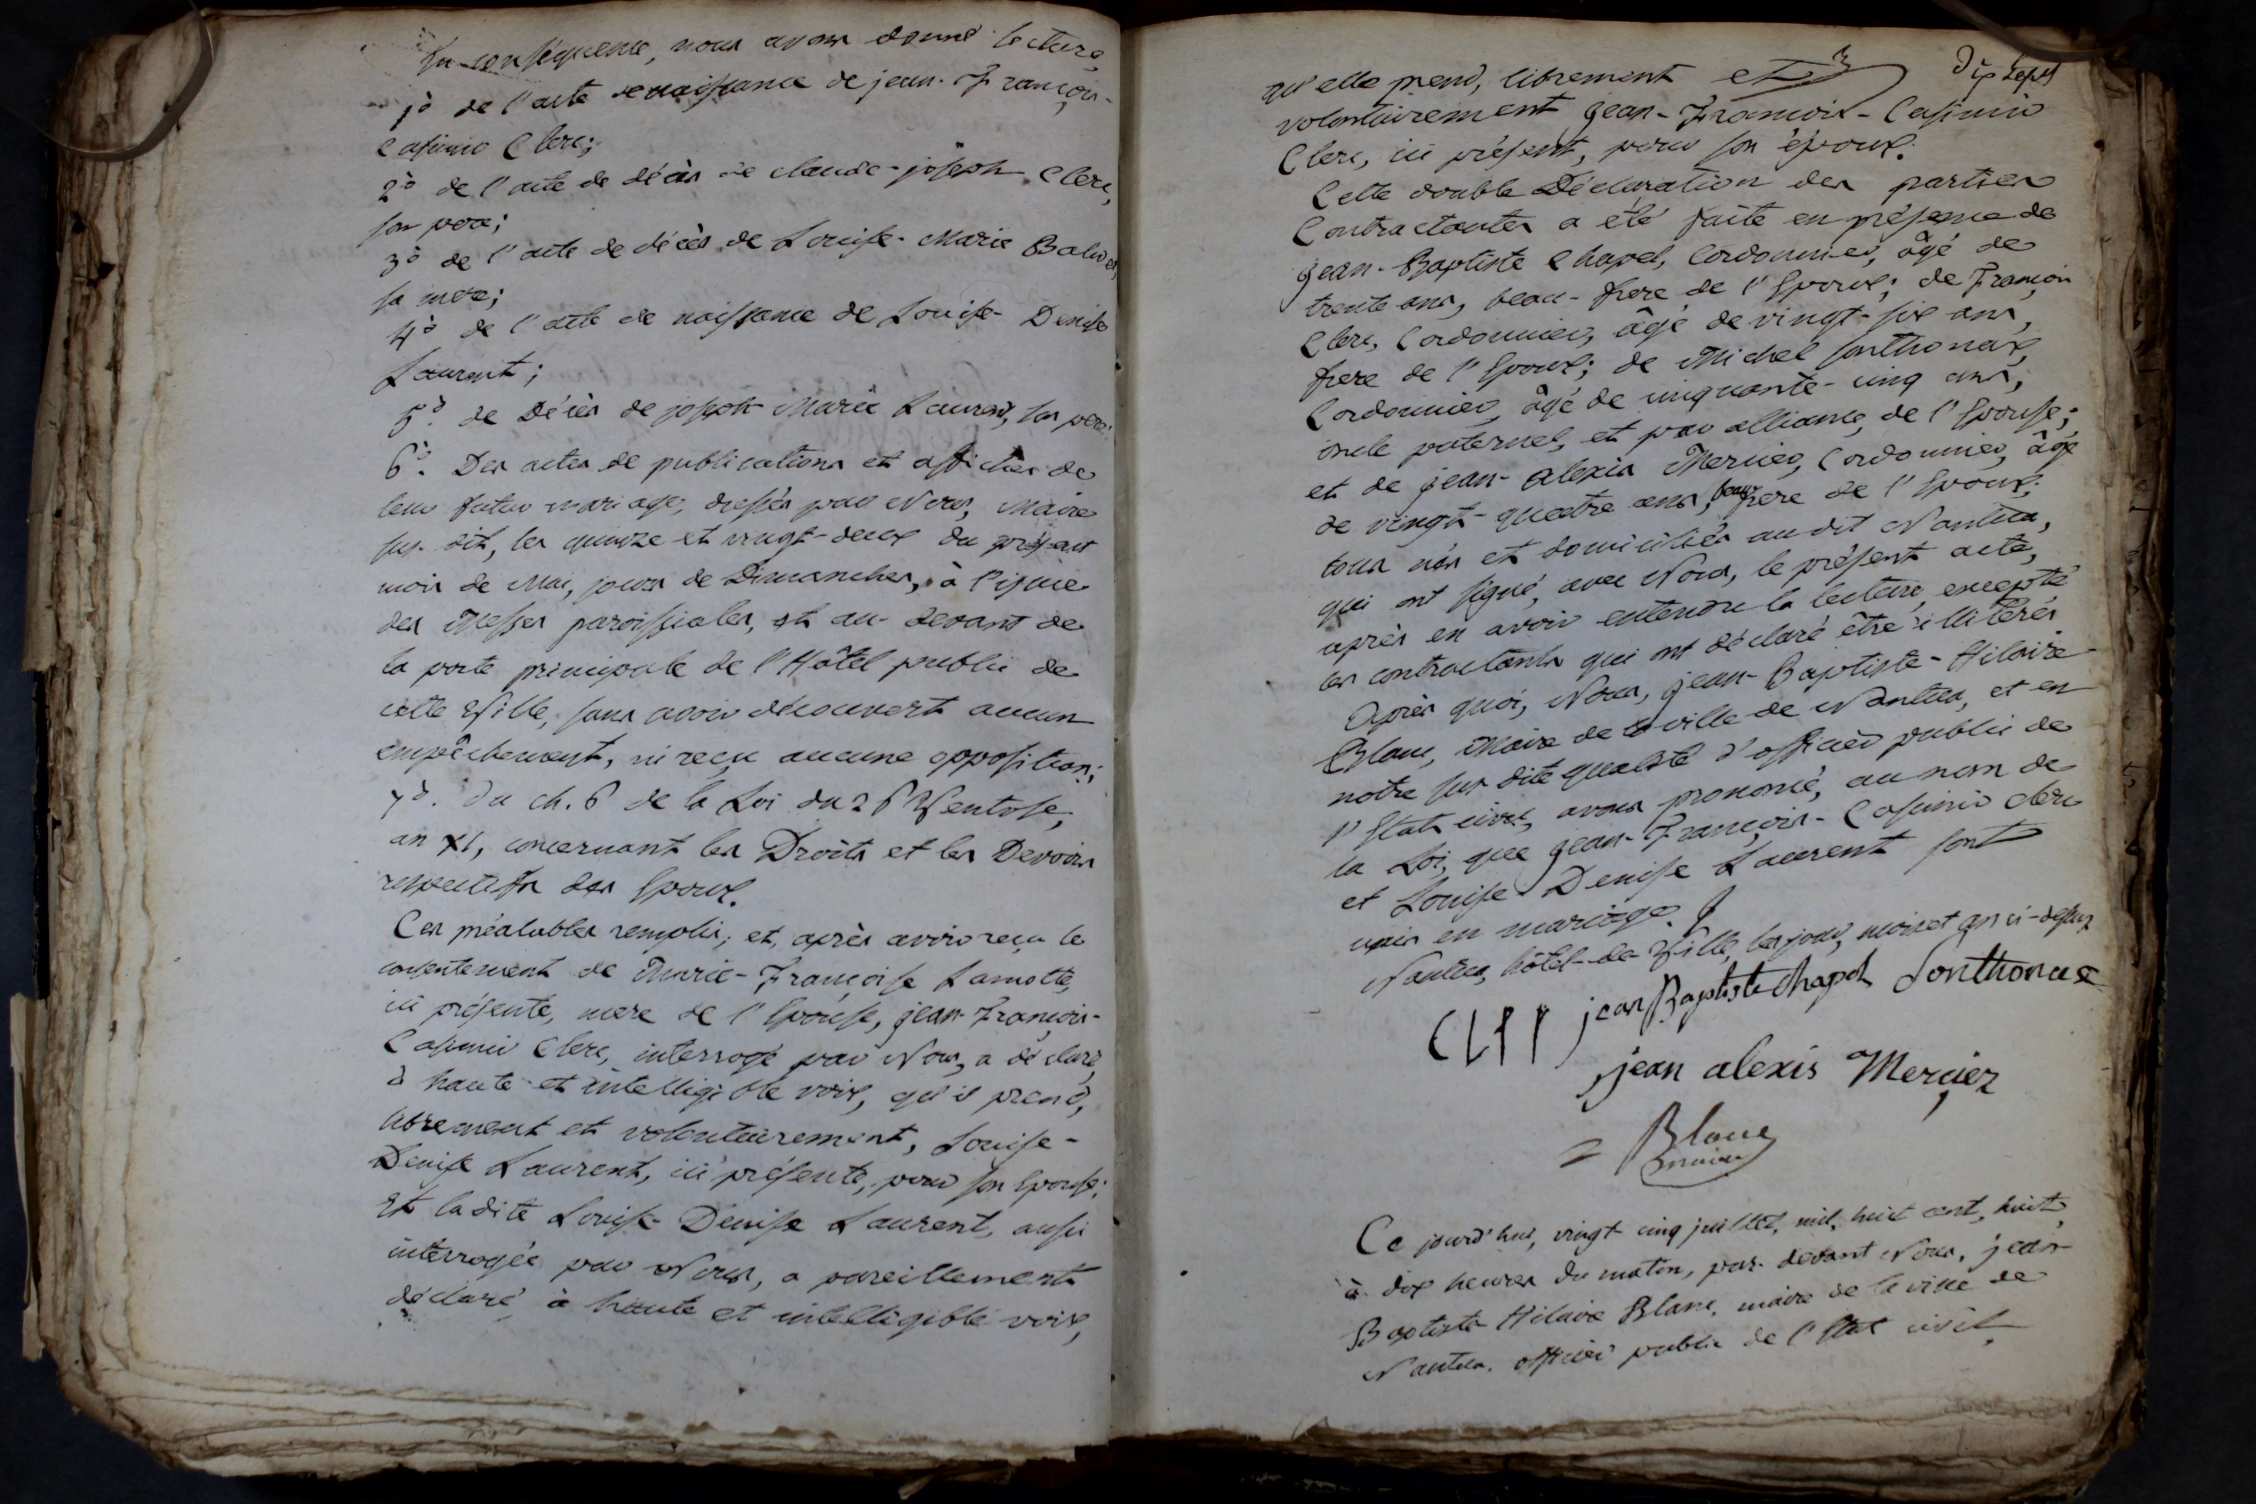 En conséquence, nous avons donné lecture
1º de l'acte de naissance de jean-François-
Casimir Clerc;
2º de l'acte de décès de claude-joseph Clerc,
son pere;
3º de l'acte de décès de Louise-Marie
sa mere;
4º de l'acte de naissance de Louise-Denise
Laurent;
5º. de Décès de joseph Marie Laurent, son pere;
6º. Des actes de publications et affiches de
leur futur mariage, dressés par Nous, Maire
sus-dit, les quinze et vingt-deux du présent
mois de Mai, jours de Dimanches, à l'issue
des Messes paroissiales, et au-devant de
la porte principale de l'Hôtel public de
cette Ville, sans avoir découvert aucun
empêchement, ni reçu aucune opposition;
7º. du ch. 6 de la Loi du 26 Ventose,
an XI, concernant les Droits et les Devoirs
respectifs des Epoux.
Ces préalables remplis, et, après avoir reçu le
consentement de Marie-Françoise Lamotte,
ici présente, mere de l'Epouse, jean-François-
Casimir Clerc, interrogé par Nous, a déclaré,
à haute et intelligible voix, qu'il prend,
librement et volontairement, Louise-
Denise Laurent, ici présente, pour son Epouse;
Et ladite Louise-Denise Laurent, aussi
interrogée par Nous, a pareillement
déclaré à haute et intelligible voix,
Dix sept
qu'elle prend, librement et
volontairement jean-François-Casimir
Clerc, ici présent, pour son époux.
Cette double Déclaration des parties
Contractantes a été faite en présence de
jean-Baptiste Chapel, Cordonnier, âgé de
trente ans, beau-frere de l'Epoux; de François
Clerc, Cordonnier, âgé de vingt-six ans,
frere de l'Epoux; de Michel Sonthonax,
Cordonnier, âgé de cinquante-cinq ans,
oncle paternel, et par alliance, de l'Epouse;
et de jean-alexis Mercier, Cordonnier, âgé
de vingt-quatre ans, beau frere de l'Epoux;
tous nés et domiciliés audit Nantua,
qui ont signé, avec Nous, le présent acte,
après en avoir entendu la lecture, excepté
les contractants qui ont déclaré être illitérés
Après quoi, Nous, jean-Baptiste-Hilaire
Blanc, Maire de la ville de Nantua, et en
notre sus dite qualité d'officier public de
l'Etat civil, avons prononcé, au nom de
la Loi, que jean-François-Casimir Clerc
et Louise Denise Laurent sont
unis en mariage.
Nantua, hôtel-de-Ville, les jour, mois et an ci-dessus
jean Baptiste Chapel Sonthonax
jean alexis Mercier
Blanc
maire
Ce jourd'hui, vingt cinq juillet, mil huit cent huit,
à dix heures du matin, par-devant Nous, jean
Baptiste Hilaire Blanc, maire de la ville de
Nantua, officier public de l'Etat civil,